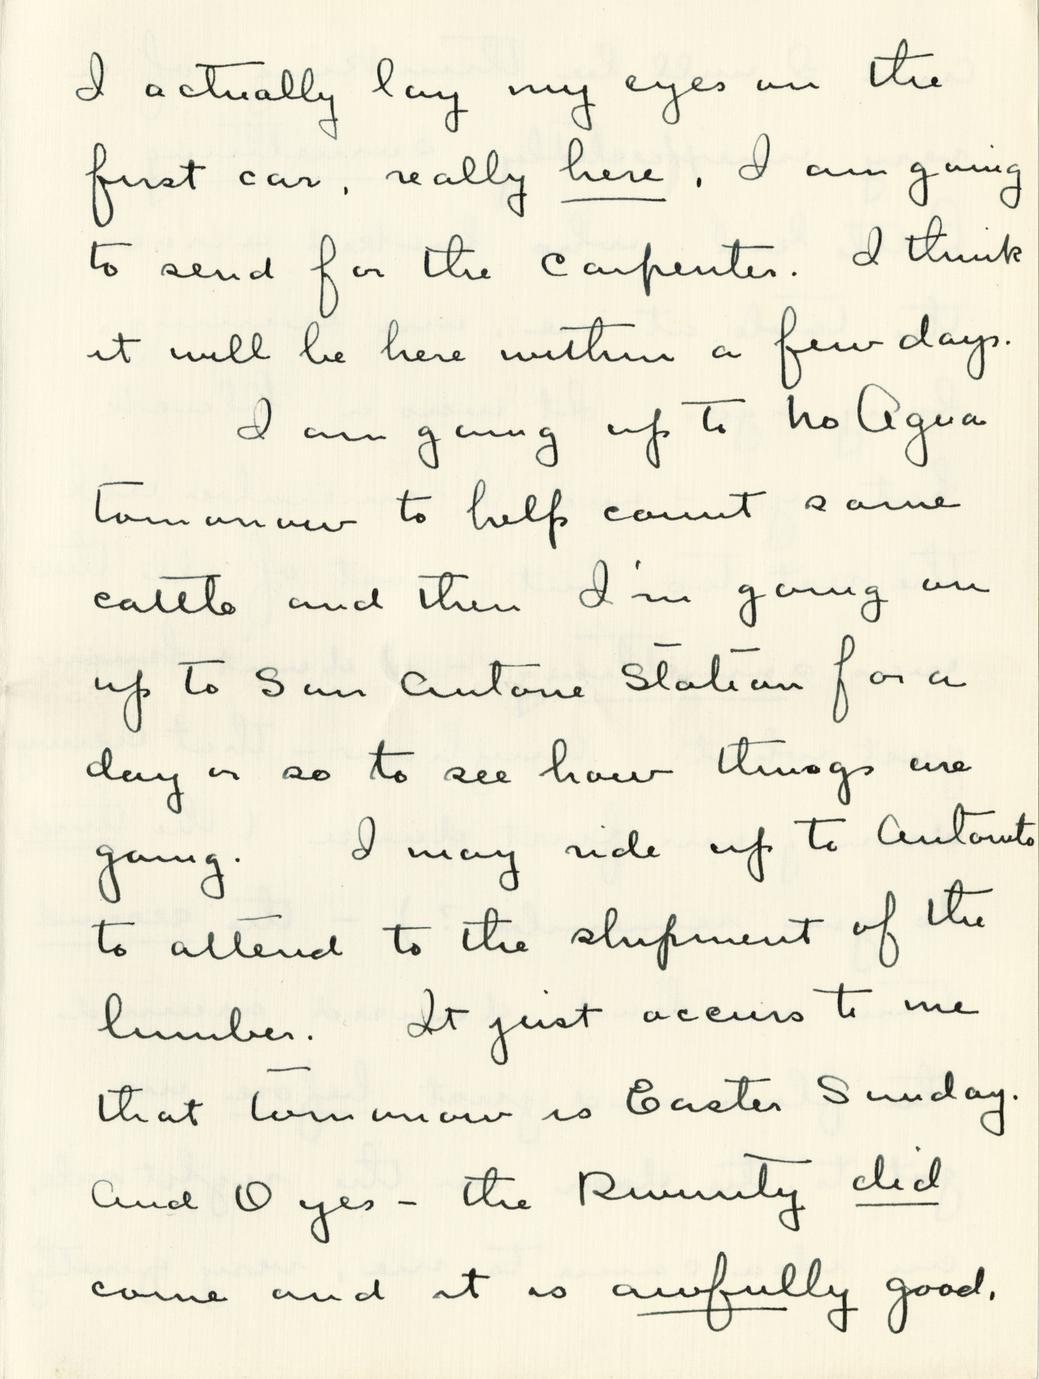 I actually lay my eyes on the
first car, really here, I am going
to send for the carpenter. I think
it will be here within a few days.
I am going up to No Agua
tomorrow to help count some
cattle and then I'm going on
up to San Antone Station for a
day or so to see how things are
going. I may ride up to Antonito
to attend to the shipment of the
lumber. It just occurs to me
that tomorrow is Easter Sunday.
And O yes - the did
come and it is awfully good.